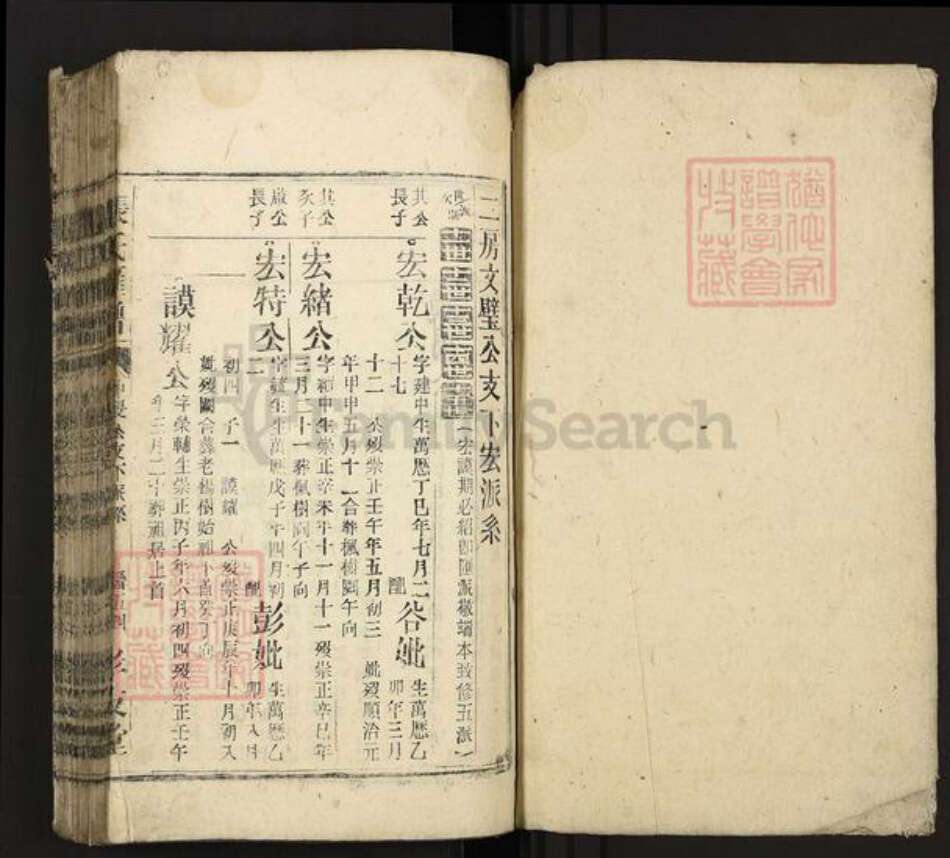 二房文璧公支下宏派系
(宏謨期必紹 派 端本致修五派)
其公長子
宏乾公 字建中生萬曆丁巳年七月二
十七
配谷妣 生萬曆乙
卯年三月
十二 公歿崇正壬午年五月初三 妣歿順治元
年甲申五月十一合葬楓樹園午向
其公次子
宏緒公 字 中生崇正辛未年十一月十一歿崇正辛巳年
三月二十一葬楓樹園午子向
啟公長子
宏特公 字 生萬曆戊子年四月初
二
配彭妣 生萬曆乙
卯年八月
初四 子一 謨耀 公歿崇正庚辰年十月初八
妣歿闕合葬老楊樹始祖下首癸丁向
謨耀公 字榮輔生崇正丙子年六月初四歿崇正壬午
年三月二十葬祖居上首
猶他家譜學會特藏
FamilySearch